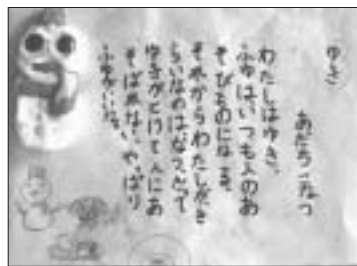 ゆき
あだち こなつ
わたしはゆき。
ふゆは、いつも人のあ
そびものになる。
それからわたしがき
らいなのはなつ。だって
ゆきがとけて人にあ
そばれない。やっぱり
ふゆがいいな。